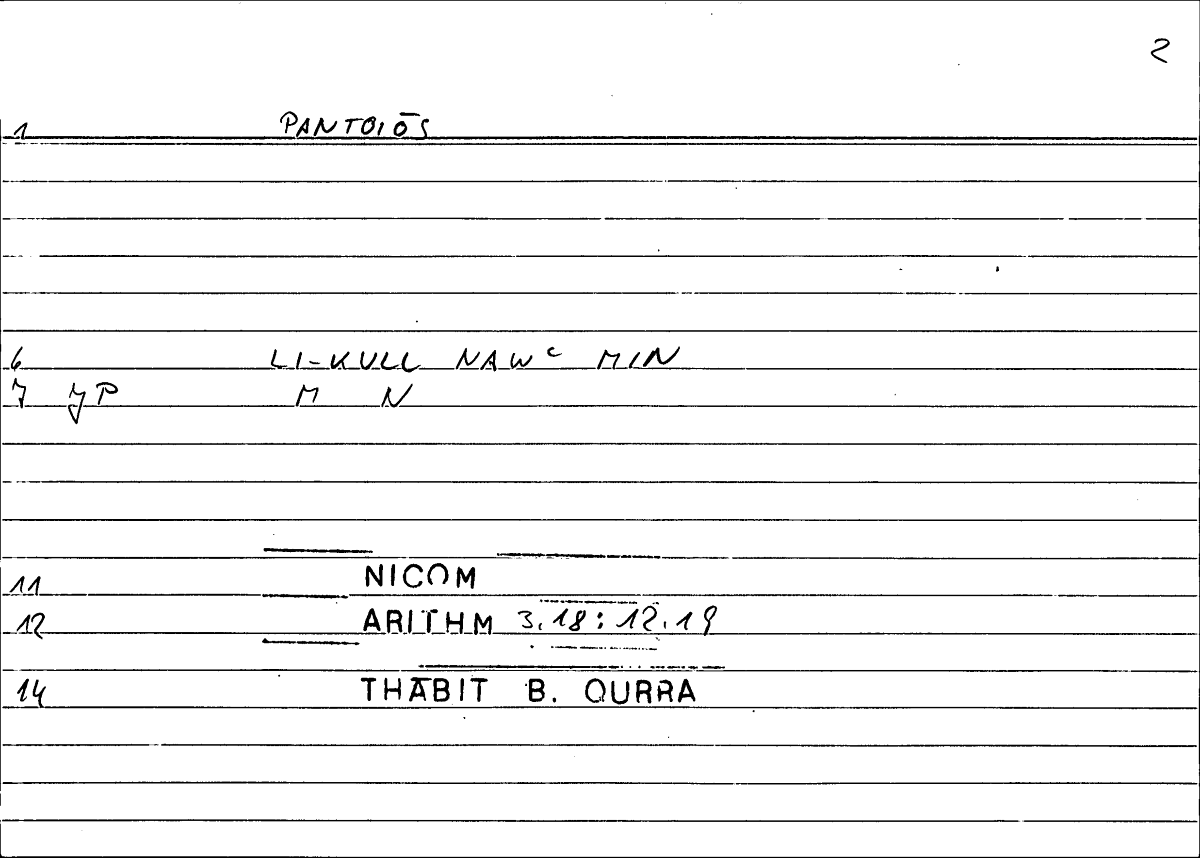 2
1 PANTOIŌS
6 LI-KULL NAWᶜ MIN
7 JP M N
11 NICOM
12 ARITHM 3.18:12.19
14 THĀBIT B. QURRA